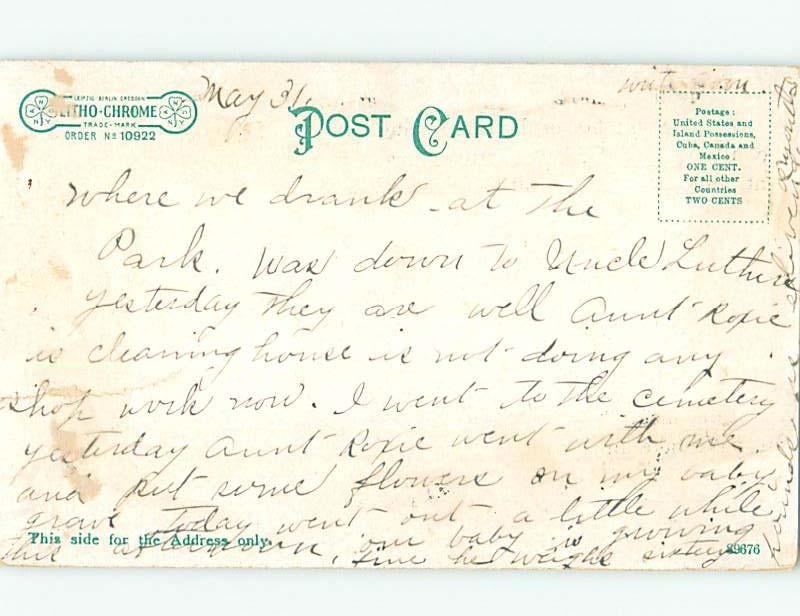 LEIPZIG BERLIN DRESDEN
LITHO-CHROME
TRADE-MARK
ORDER No 10922
May 31,
POST CARD
Postage:
United States and
Island Possessions,
Cuba, Canada and
Mexico
ONE CENT.
For all other
Countries
TWO CENTS
where we drank at the
Park. Was down to Uncle Luthers
yesterday they are well Aunt Roxie
is cleaning house is not doing any
shop work now. I went to the cemetery
yesterday Aunt Roxie went with me
and put some flowers on my baby
grave today went out a little while
this afternoon, our baby is growing
fine he weighs sixteen
pounds
This side for the Address only.
89676